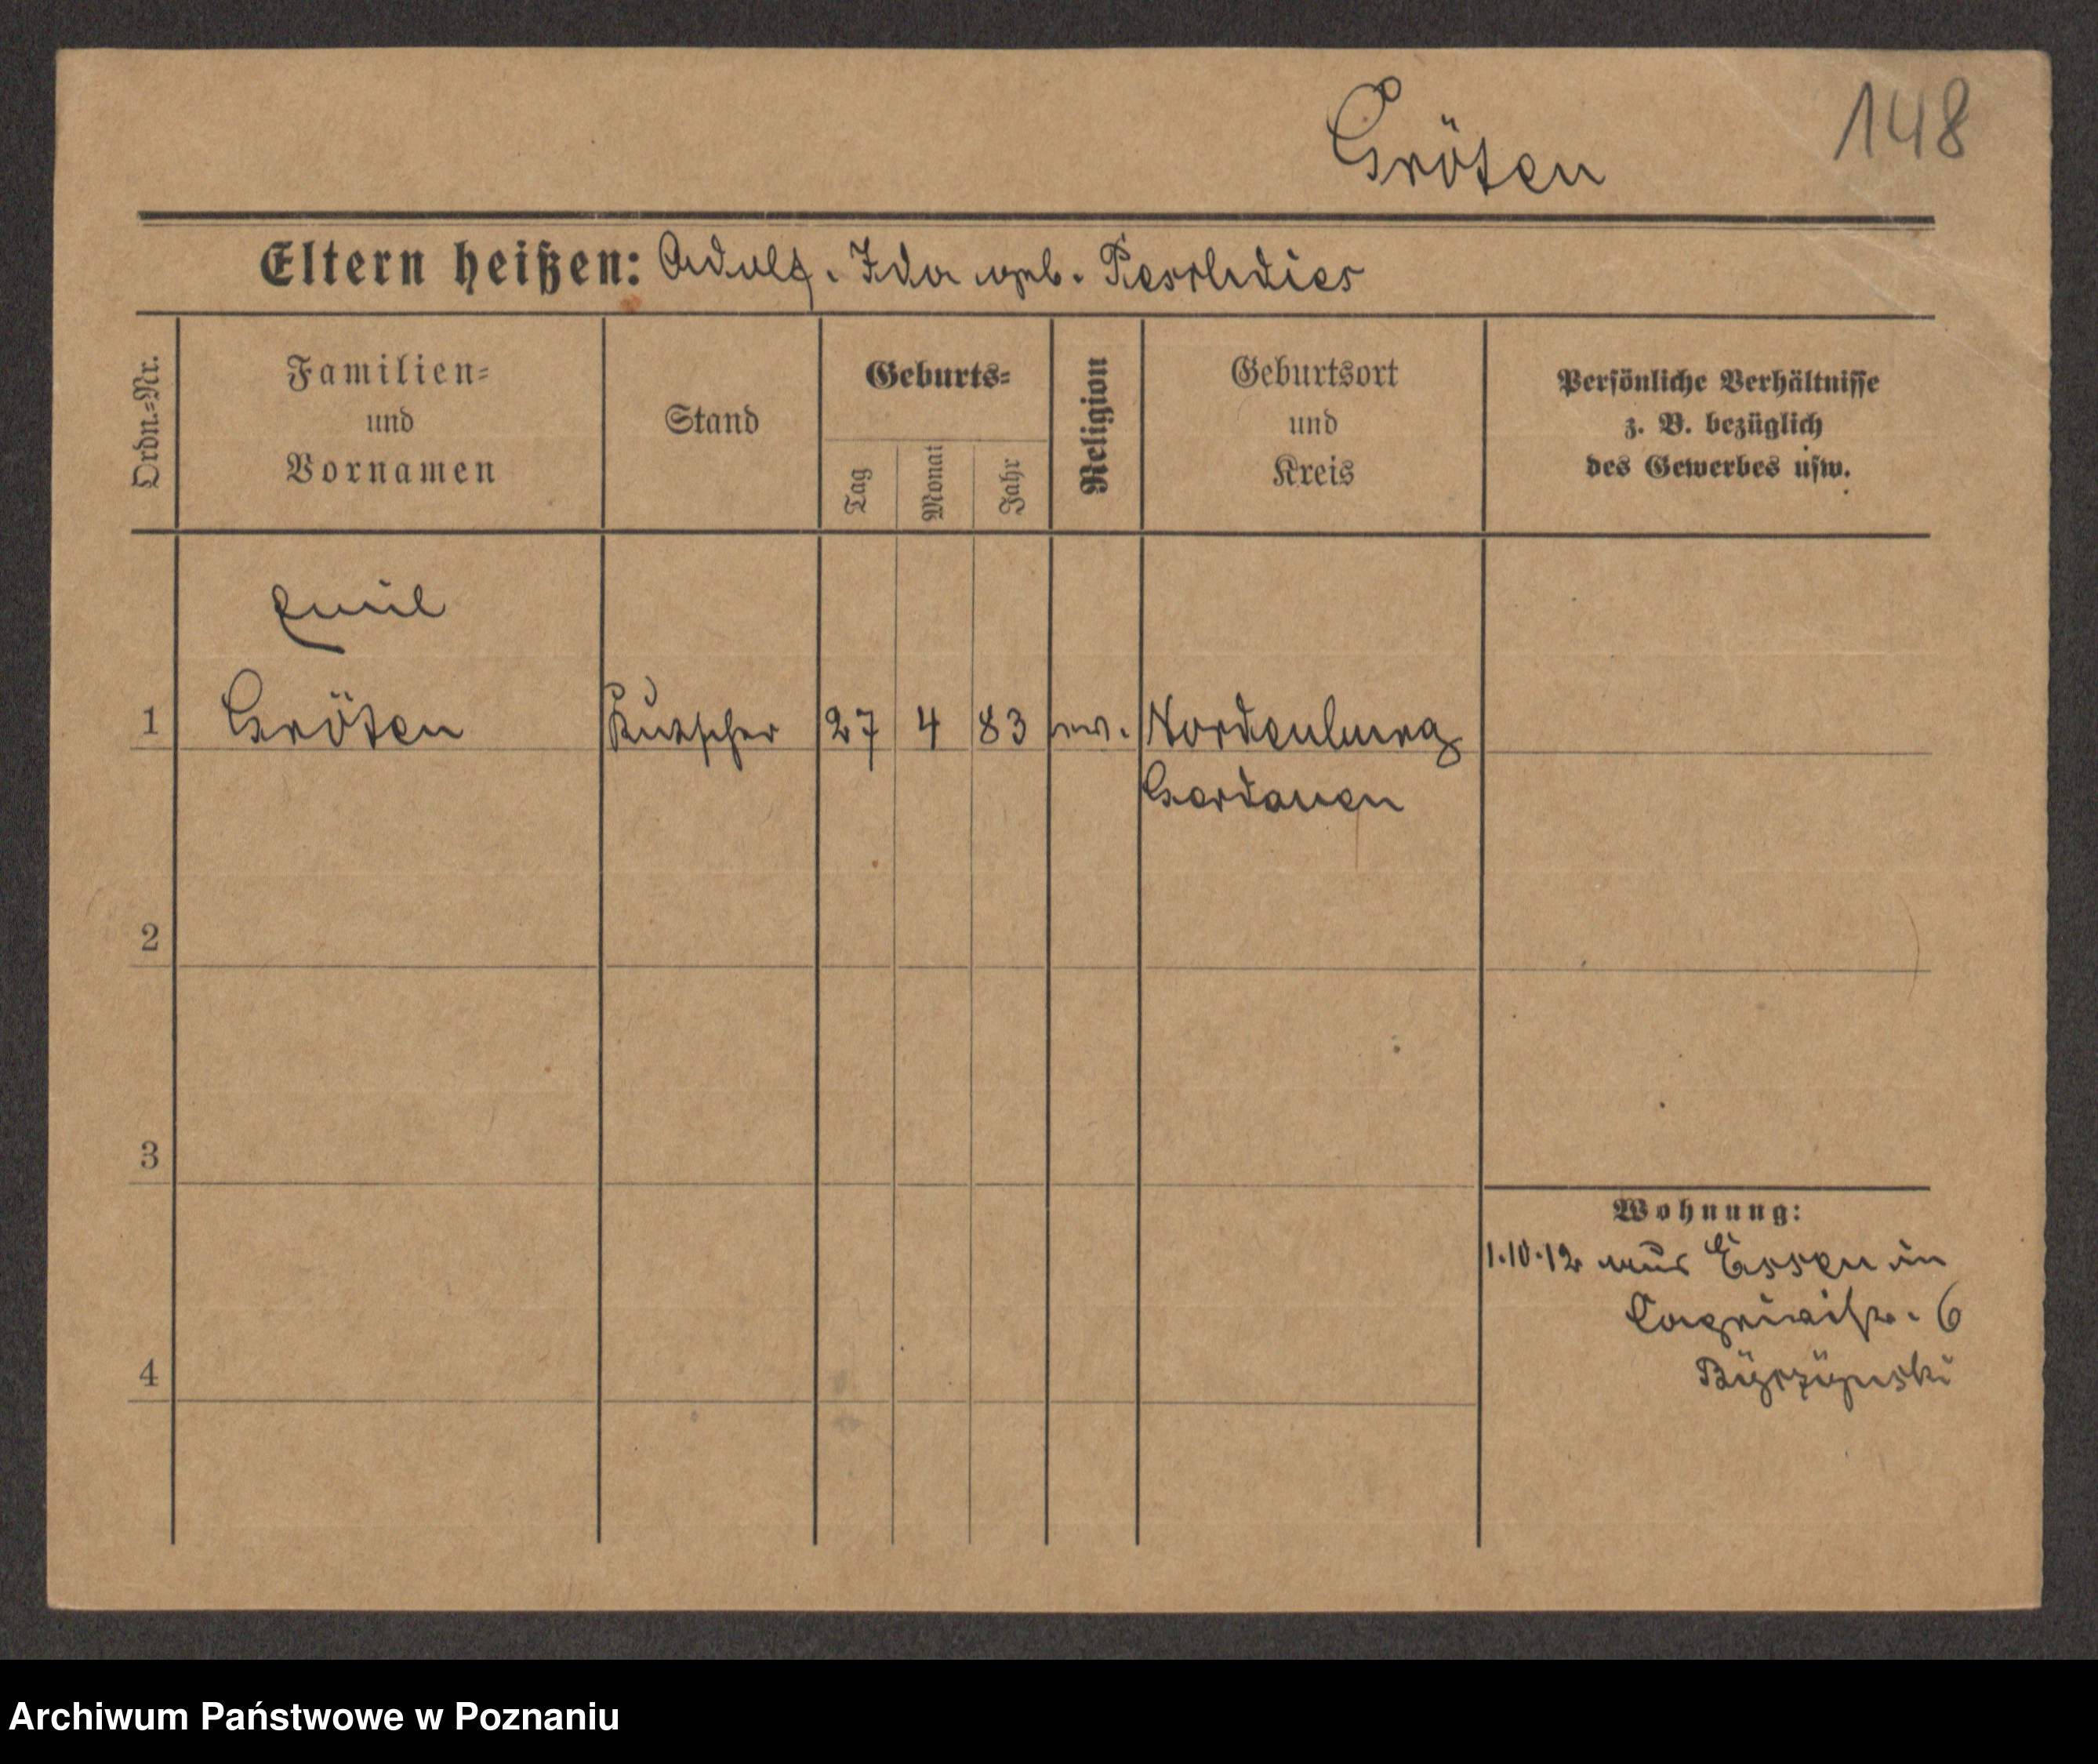 148
Gröten
Eltern heißen: Adolf. Ida geb.
Ordn.=Nr.
Familien=
und
Vornamen
Stand
Geburts=
Tag
Monat
Jahr
Religion
Geburtsort
und
Kreis
Persönliche Verhältnisse
z. B. bezüglich
des Gewerbes usw.
Emil
1 Gröten Kutscher 27 4 83 ev. Nordenburg
Gerdauen
2
3
Wohnung:
1.10.12 aus Essen in
6
4
Archiwum Państwowe w Poznaniu